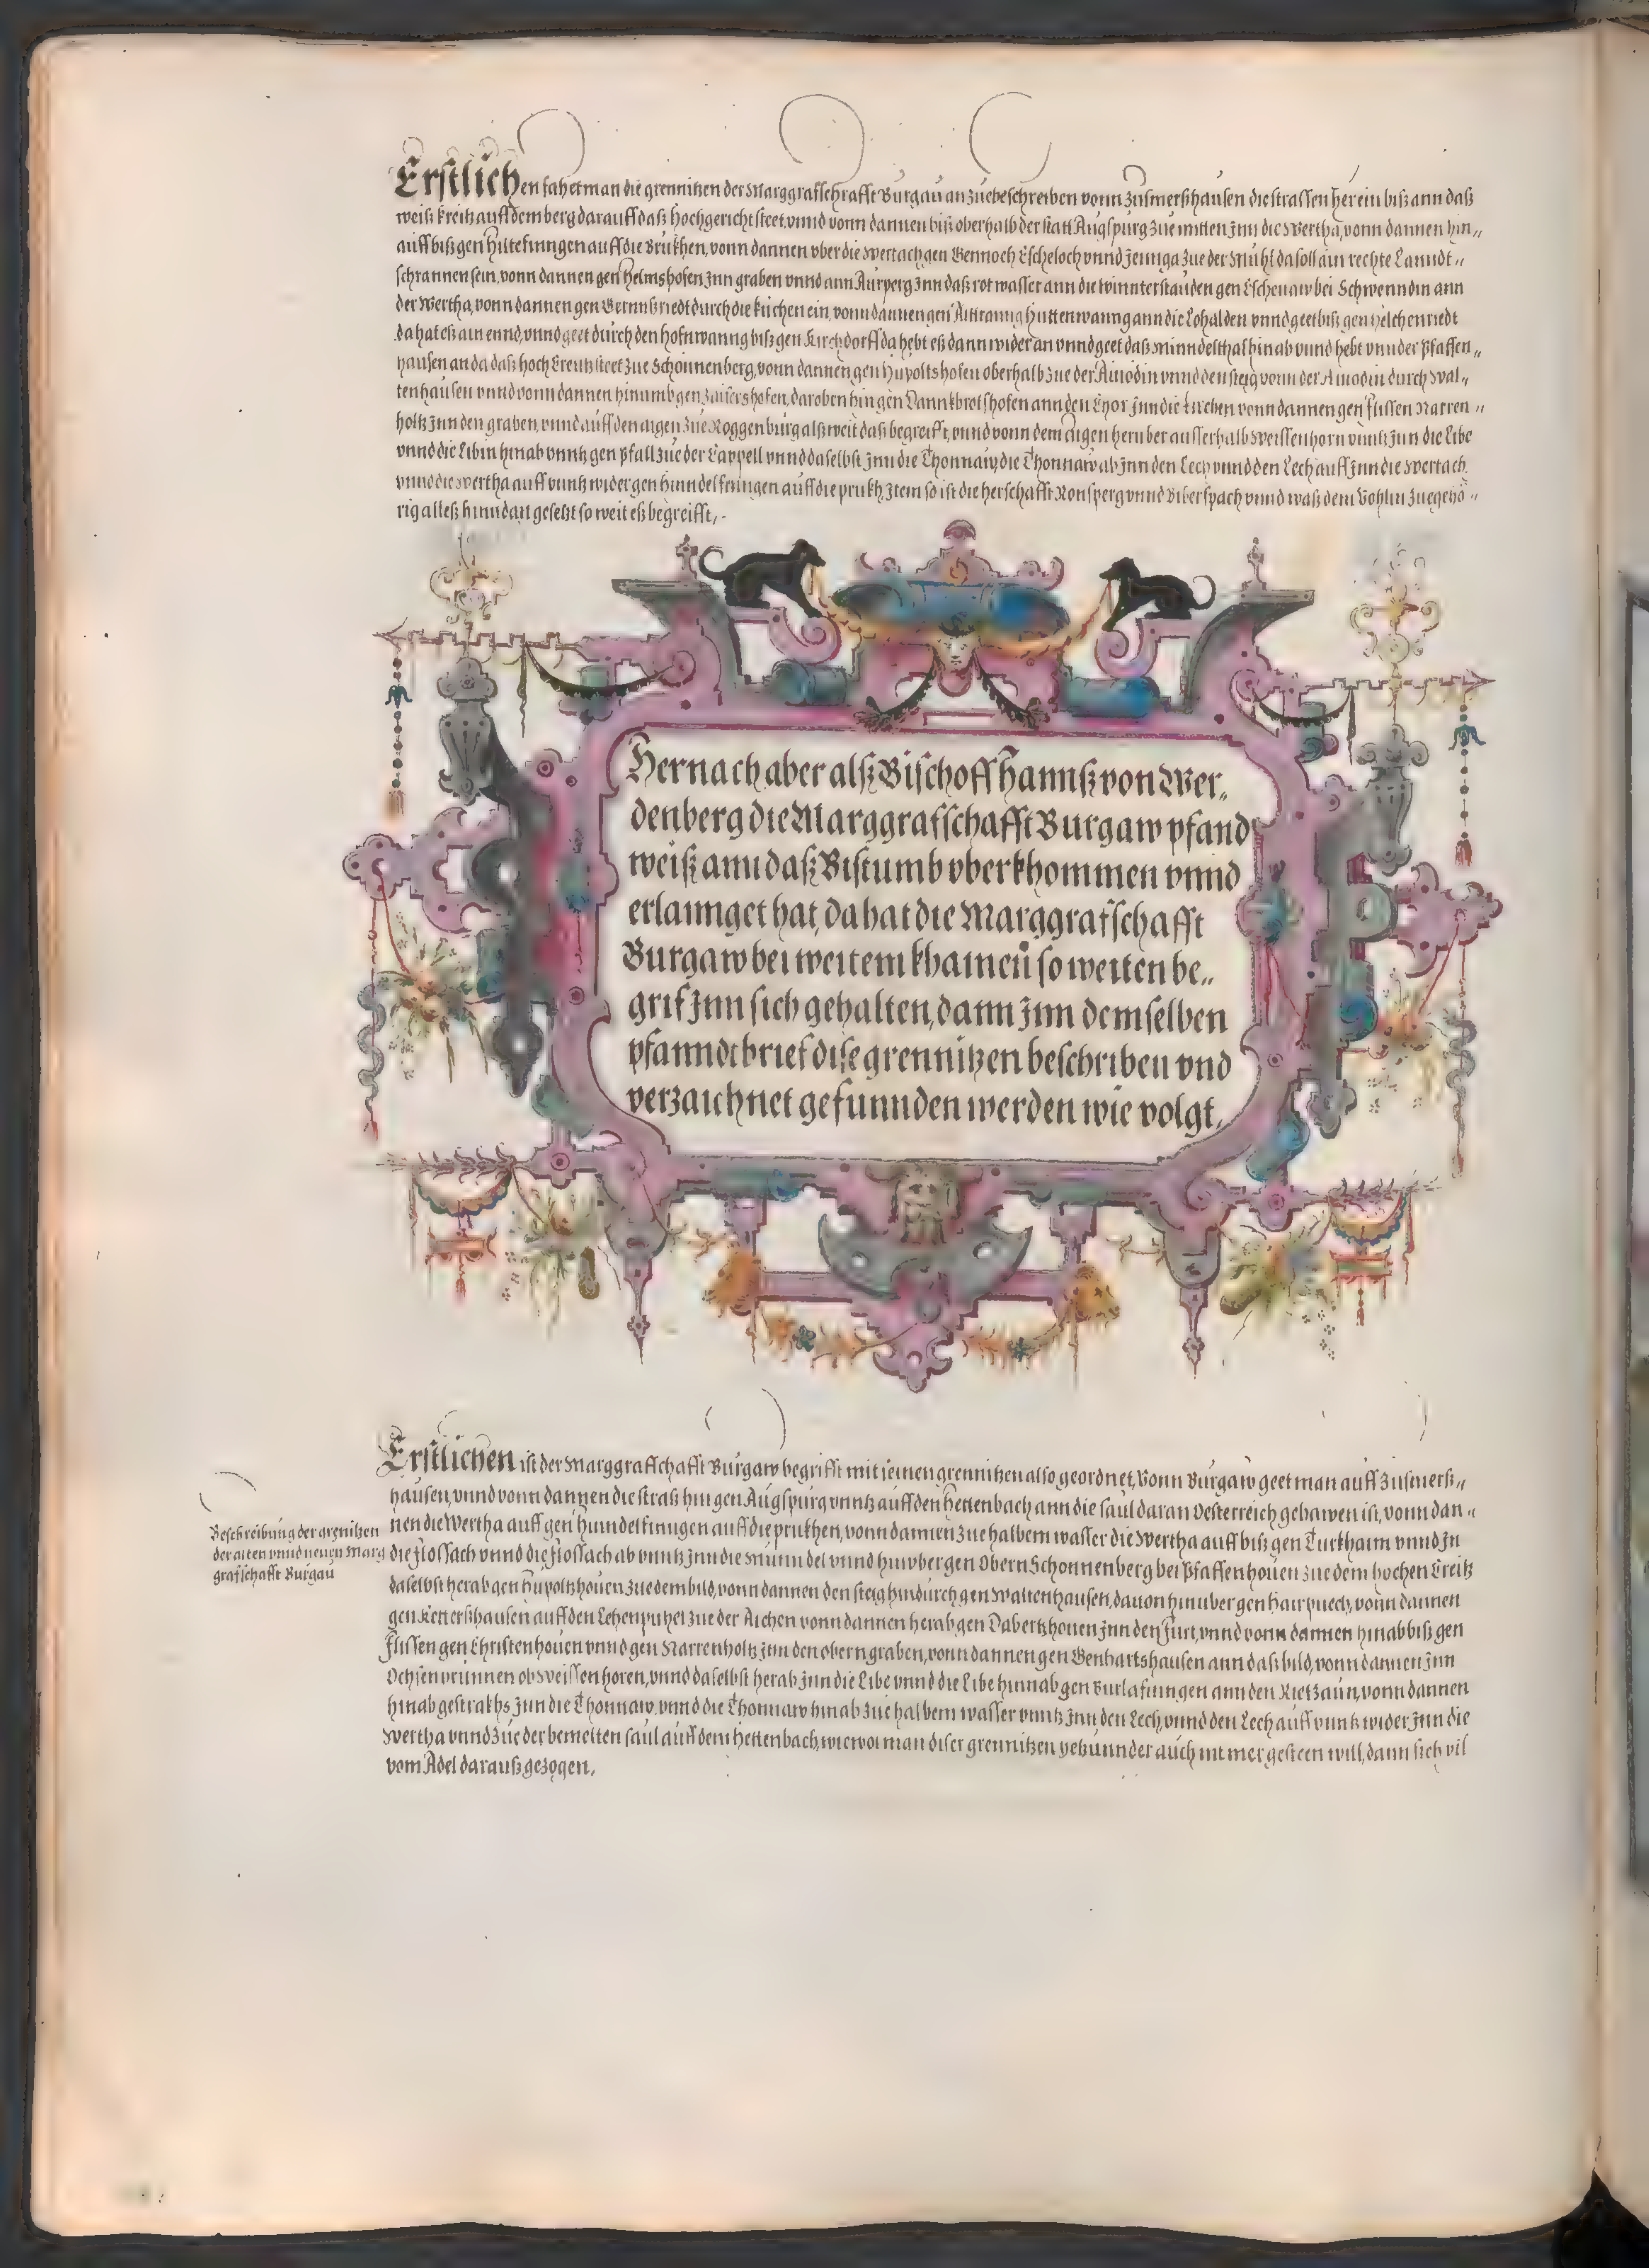 Erstlichen fahet man die grennitzen der Marggrafschrafft Burgau an zuebeschreiben vonn Zusmerßhausen die strassen herein biß ann daß
weiß kreitz auff dem berg darauff daß hochgericht steet, vnnd vonn dannen biß oberhalb der statt Augspurg zue mitten Inn die Wertha, vonn dannen hin„
auff biß gen Hiltefinngen auff die Brukhen, vonn dannen vber die Wertach gen Gennoch Escheloch vnnd Jennga zue der Muhl da soll ain rechte Lanndt„
schrannen sein, vonn dannen gen Helmshofen Inn graben vnnd ann Aurperg Inn daß rot wasser ann die winnterstauden gen Eschenaw bei Schwenndin ann
der Wertha, vonn dannen gen Bernnßriedt durch die kirchen ein, vonn dannen gen Huttenwanng ann die Lohalden vnnd geet biß gen Helchenriedt
da hat eß ain ennd, vnnd geet durch den hofnwanng biß gen Kirchdorff da hebt eß dann wider an vnnd geet daß Minndelthal hinab vnnd hebt vnnder Pfaffen„
hausen an da daß hoch Creutz steet zue Schönnenberg, vonn dannen gen Hupoltshofen oberhalb zue der Ainödin vnnd den steig vonn der Ainödin durch Wal„
tenhausen vnnd vonn dannen hinumb gen Zaisershofen, daroben hin gen Dannkbrotshofen ann den Chor Inn die kirchen vonn dannen gen Flissen Narren„
holtz Inn den graben, vnnd auff den aigen zue Roggenburg alß weit daß begreifft, vnnd vonn dem Aigen heruber ausserhalb Weissenhorn vnntz Inn die Libe
vnnd die Libin hinab vnntz gen Pfall zue der Cappell vnnd daselbst Inn die Thonnaw, die Thonnaw ab Inn den Lech vnnd den Lech auff Inn die Wertach
vnnd die Wertha auff vuntz wider gen Hinndelfinngen auff die prukh Item so ist die herschafft Ronsperg vnnd Biberspach vnnd waß dem Vohlin zuegehö„
rig alleß hinndan gesetzt so weit eß begreifft,
Hernach aber alß Bischoff Hannß von Wer„
denberg die Marggrafschafft Burgaw pfand
weiß ann daß Bistumb vberkhommen vnnd
erlannget hat, da hat die Marggrafschafft
Burgaw bei weitem khainen so weiten be„
grif Inn sich gehalten, dann Inn demselben
pfanndtbrief dise grennitzen beschriben vnd
verzaichnet gefunnden werden wie volgt,
Erstlichen ist der Marggraffschafft Burgaw begrifft mit seinen grennitzen also geordnet, Vonn Burgaw geet man auff Zusmerß„
hausen, vnnd vonn dannen die straß hin gen Augspurg vnntz auff den Hettenbach ann die saul daran Oesterreich gehawen ist, vonn dan„
nen die Wertha auff gen Hinndelfinngen auff die prukhen, vonn dannen zue halbem wasser die Wertha auff biß gen Turkhaim vnnd In
die Flossach vnnd die Flossach ab vnntz Inn die Minndel vnnd hinvber gen Obern Schonnenberg bei Pfaffenhouen zue dem hochen Creitz
daselbst herab gen Hupoltzhouen zue dem bild, vonn dannen den steig hindurch gen Waltenhausen, dauon hinuber gen Hairpuech, vonn dannen
gen auff den Lehenpuhel zue der Aichen vonn dannen herab gen Dabertzhouen Inn den Furt, vnnd vonn dannen hinab biß gen
Flissen gen Christenhouen vnnd gen Narrenholtz Inn den obern graben, vonn dannen gen Genhartshausen ann daß bild, vonn dannen Inn
Ochsenbrunnen ob Weissenhoren, vnnd daselbst herab Inn die Libe vnnd die Libe hinnab gen Burlafinngen ann den Rietzaun, vonn dannen
hinab gestrakhs Inn die Thonnaw, vnnd die Thonnaw hinab zue halbem wasser vnntz Inn den Lech, vnnd den Lech auff vuntz wider Inn die
Wertha vnnd zue der bemelten saul auff dem Hettenbach, wiewol man diser grennitzen yetzunnder auch nit mer gesteen will, dann sich vil
vom Adel darauß gezogen,
Beschreibung der grenitzen
der alten vnnd neuen Marg
grafschafft Burgau